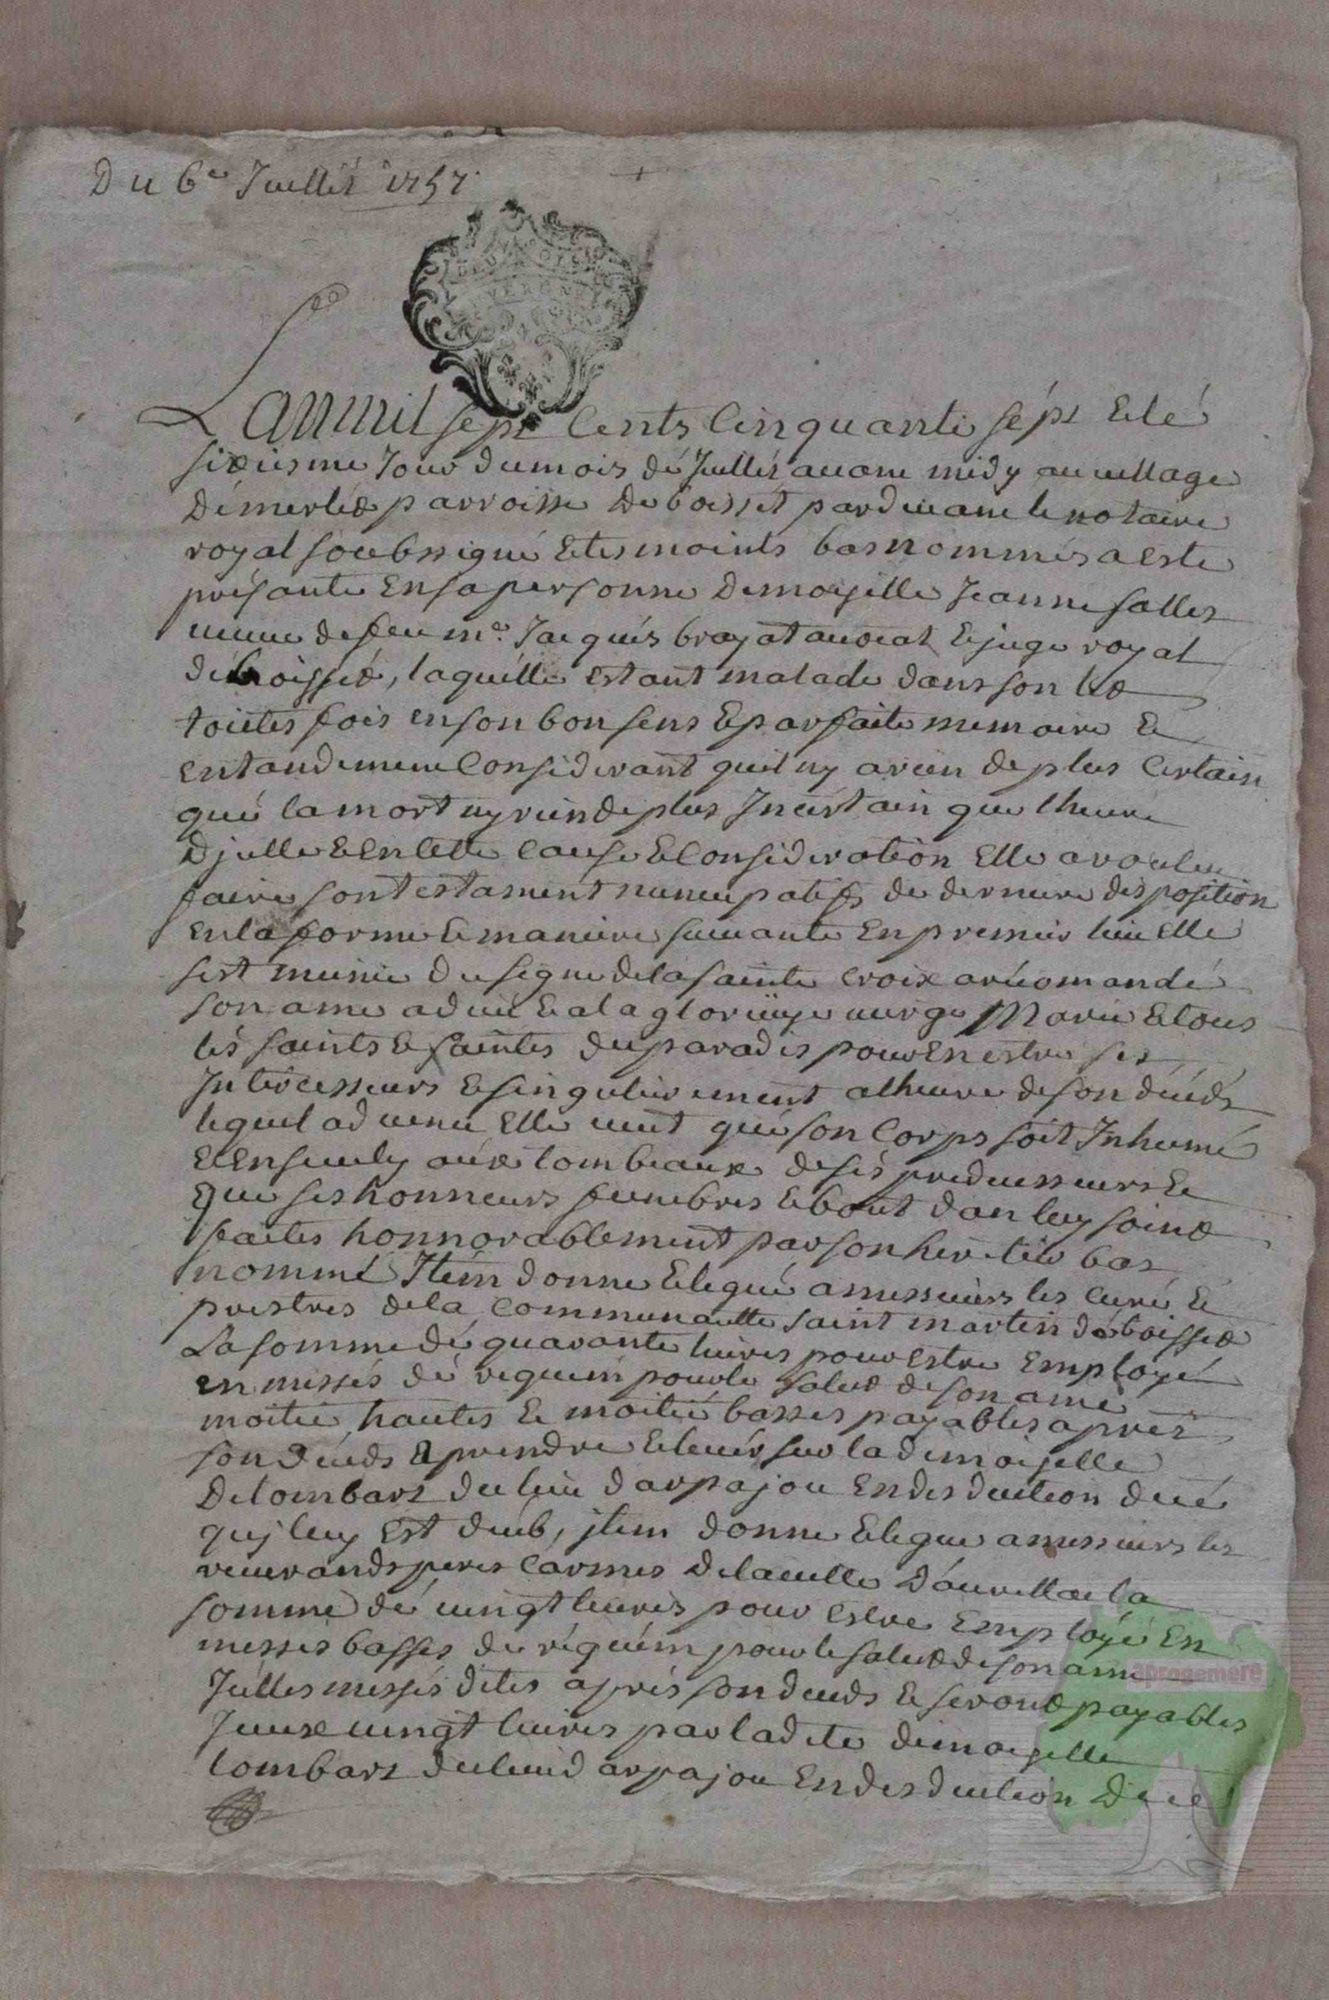 Du 6e Juillét 1757
Lan mil sept Cents Cinquante sépt et lé
sixiesme Jour du mois dé Juillét avant midy au village
Démerlés parroisse De boissét pardevant le notaire
royal soubssigné et tesmoints bas nommés a esté
présante en sa personne Demoyselle Jeanne salles
veuve de feu me. Jacqués broyat avocat et juge royal
dé boisset, laquélle estant malade dans son lit
toutes fois en son bon sens et parfaite memoire et
entandement Considerant quil ny a rien de plus Certain
qué la mort ny rien de plus Incértain que lheuré
Djcelle et en cette cause et Consideration Elle a voulu
faire son testament nuncupatif de derniere disposition
en la forme et maniere suivante En premier lieu elle
sest munie du signe de la sainte croix a récomandé
son ame a dieu et a la glorieuse vierge Marie et tous
lés saints et saintes du paradis pour En estre ses
Intercesseurs et singulierement a lheure de son décéds
lequel advenu Elle veut qué son Corps soit Inhumé
et Ensevely aux tombeaux de sés predecesseurs et
Que ses honneurs funebres et bout dan luy soint
faites honnorablement par son heritier bas
nommé Item donne et legué a messieurs les curé et
prestres de la Communauté saint martin dé boisset
La somme dé quarante livres pour Estre Employé
en messés dé requiem pour le salut de son ame
moitié hautes et moitié basses payables aprés
son décéds a prendre et lever sur la demoiselle
De lombart du lieu darpajou En desduction de cé
quj luy Est deub, jtem donne et legue a messieurs les
reverands peres Carmes De la ville D'aurillac la
somme dé vingt livres pour estre Employé En
messés basses de réquiém pour le salut de son ame
Jcelles messés dites aprés son décéds et seront payables
Jceux vingt livres par ladite demoyselle
lombart du lieu darpajou En desduction De ce
aprogemere